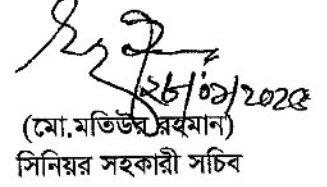 ২৮/০১/২০২৫
(মো.মতিউর রহমান)
সিনিয়র সহকারী সচিব